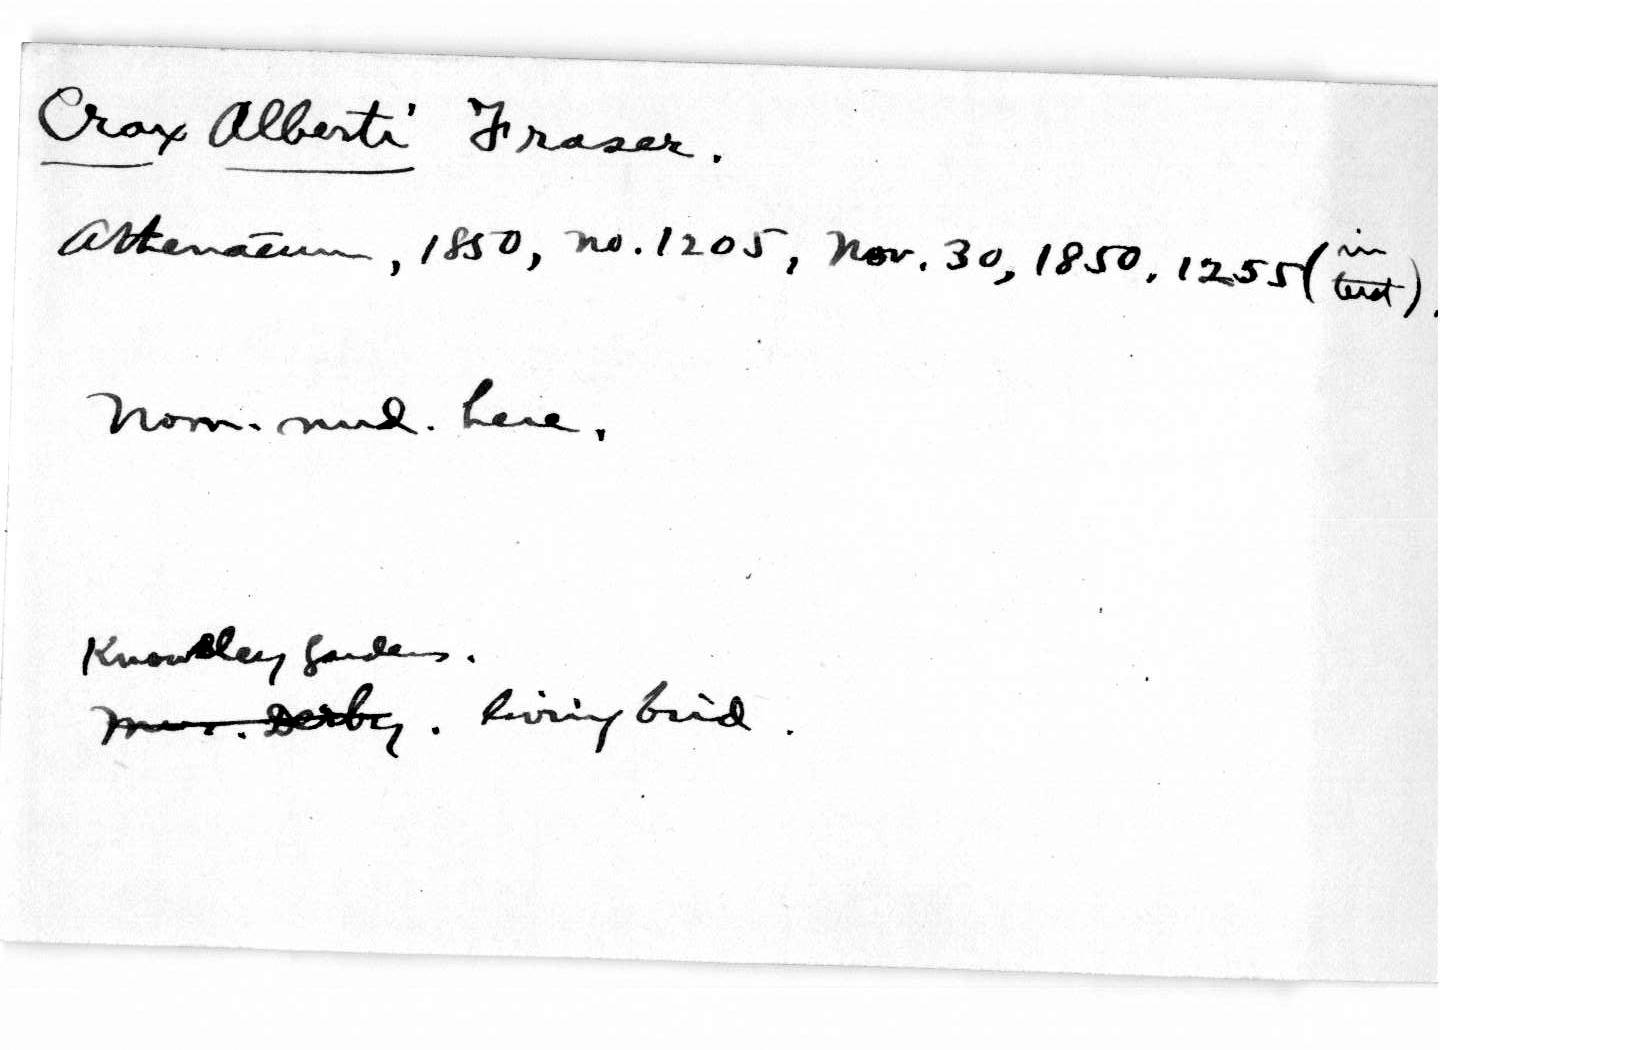 Crax Alberti Fraser.
Athenaeum, 1850, no. 1205, Nov. 30, 1850, 1255 (in text).
Nom. nud. here.
Knowsley Gardens.
Mus. Derby. living bird.